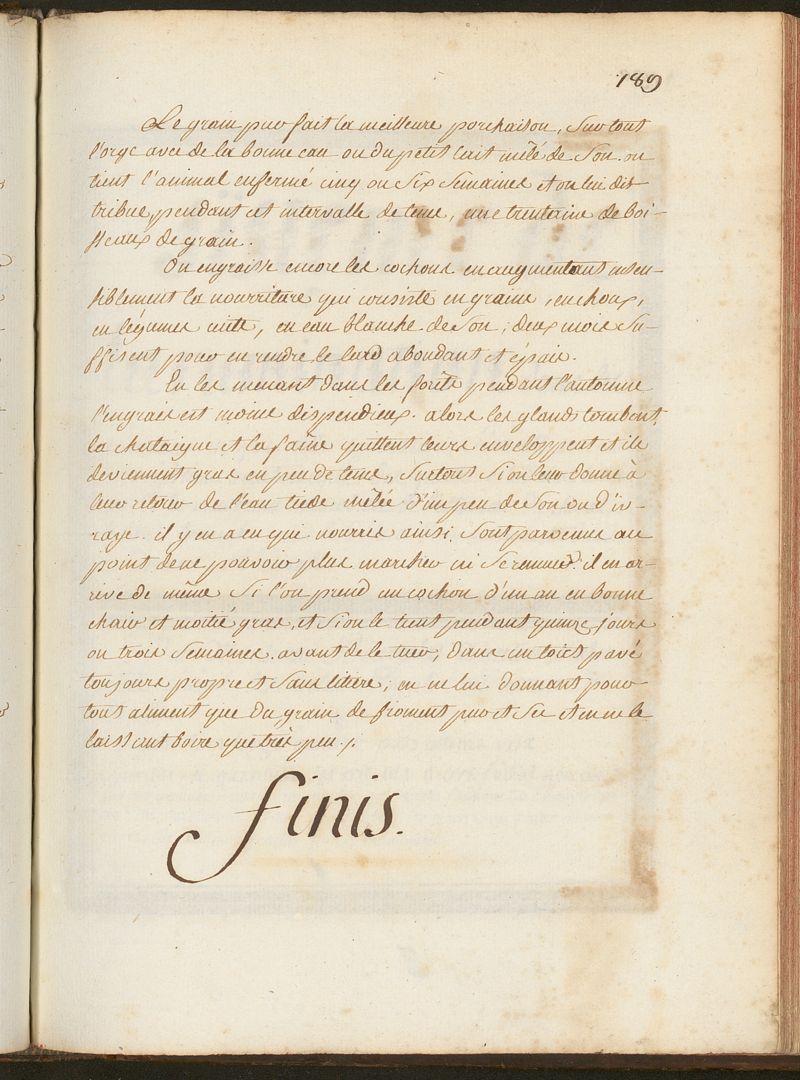 189
Le grain pur fait la meilleure porchaison, sur tout
l'orge avec de la bonne eau ou du petit lait mêlé de son. on
tient l'animal enfermé cinq ou six semaines et on lui dis
tribue, pendant cet intervalle de tems, une trentaine de boi-
sseaux de grain.
On engraisse encore les cochons en augmentant insen-
siblement la nourriture qui consiste en grains, en choux,
en légumes cuits, en eau blanche de son; deux mois su-
ffisent pour en rendre le lard abondant et épais.
En les menant dans les forêts pendant l'automne
l'engrais est moins dispendieux. alors les glands tombent,
la chataigne et la faîne quittent leurs enveloppent et ils
deviennent gras en peu de tems, surtout si on leur donne à
leur retour de l'eau tiede mêlée d'un peu de son ou d'iv-
raye. il y en a eu qui nourris ainsi, sont parvenus au
point de ne pouvoir plus marcher ni se remuer. il en ar-
rive de même si l'on prend un cochon d'un an en bonne
chair et moitié gras, et si on le tient pendant quinze jours
ou trois semaines avant de le tuer, dans un toict pavé
toujours propre et sans litiere, en ne lui donnant pour
tout aliment que du grain de froment pur et sec et en ne le
laissant boire que très peu./.
finis.